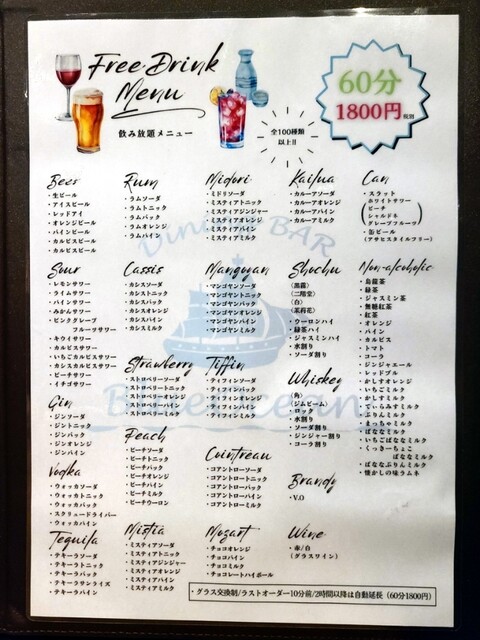 Free Drink
Menu
飲み放題メニュー
全100種類
以上!!
60分
1800円 税別
Beer
・生ビール
・アイスビール
・レッドアイ
・オレンジビール
・パインビール
・カルピスビール
・カルピスビール
Rum
・ラムソーダ
・ラムトニック
・ラムバック
・ラムオレンジ
・ラムパイン
Midori
・ミドリソーダ
・ミスティアトニック
・ミスティアジンジャー
・ミスティアオレンジ
・ミスティアパイン
・ミスティアミルク
Kailua
・カルーアソーダ
・カルーアオレンジ
・カルーアパイン
・カルーアミルク
Can
・スラット
ホワイトサワー
ピーチ
シャルドネ
グレープフルーツ
・缶ビール
(アサヒスタイルフリー)
Dining BAR
Sour
・レモンサワー
・ライムサワー
・パインサワー
・みかんサワー
・ピンクグレープ
フルーツサワー
・キウイサワー
・カルピスサワー
・いちごカルピスサワー
・カシスカルピスサワー
・ピーチサワー
・イチゴサワー
Cassis
・カシスソーダ
・カシストニック
・カシスバック
・カシスオレンジ
・カシスパイン
・カシスミルク
Mangoyan
・マンゴヤンソーダ
・マンゴヤントニック
・マンゴヤンバック
・マンゴヤンオレンジ
・マンゴヤンパイン
・マンゴヤンミルク
Shochu
(黒霧)
(二階堂)
(白)
(茉莉花)
・ウーロンハイ
・緑茶ハイ
・ジャスミンハイ
・水割り
・ソーダ割り
Non-alcoholic
・烏龍茶
・緑茶
・ジャスミン茶
・無糖紅茶
・紅茶
・オレンジ
・パイン
・カルピス
・トマト
・コーラ
・ジンジャエール
・レッドブル
・かしすオレンジ
・いちごミルク
・かしすミルク
・てぃらみすミルク
・ぷりんミルク
・まっちゃミルク
・ばななミルク
・いちごばななミルク
・くっきーちょこ
ばななミルク
・ばななぷりんミルク
・懐かしの味ラムネ
Strawberry
・ストロベリーソーダ
・ストロベリートニック
・ストロベリーオレンジ
・ストロベリーパイン
・ストロベリーミルク
Tiffin
・ティフィンソーダ
・ティフィントニック
・ティフィンバック
・ティフィンオレンジ
・ティフィンパイン
・ティフィンミルク
Whiskey
(角)
(ジムビーム)
・ロック
・水割り
・ソーダ割り
・ジンジャー割り
・コーラ割り
Gin
・ジンソーダ
・ジントニック
・ジンバック
・ジンオレンジ
・ジンパイン
Peach
・ピーチソーダ
・ピーチトニック
・ピーチバック
・ピーチオレンジ
・ピーチパイン
・ピーチミルク
・ピーチウーロン
Cointreau
・コアントローソーダ
・コアントロートニック
・コアントローバック
・コアントローオレンジ
・コアントローパイン
・コアントローミルク
Brandy
・V.O
Vodka
・ウォッカソーダ
・ウォッカトニック
・ウォッカバック
・スクリュードライバー
・ウォッカパイン
Tequila
・テキーラソーダ
・テキーラトニック
・テキーラバック
・テキーラサンライズ
・テキーラパイン
Mistia
・ミスティアソーダ
・ミスティアトニック
・ミスティアジンジャー
・ミスティアオレンジ
・ミスティアパイン
・ミスティアミルク
Mozart
・チョコオレンジ
・チョコパイン
・チョコミルク
・チョコレートハイボール
Wine
・赤/白
(グラスワイン)
・グラス交換制/ラストオーダー10分前/2時間以降は自動延長 (60分1800円)